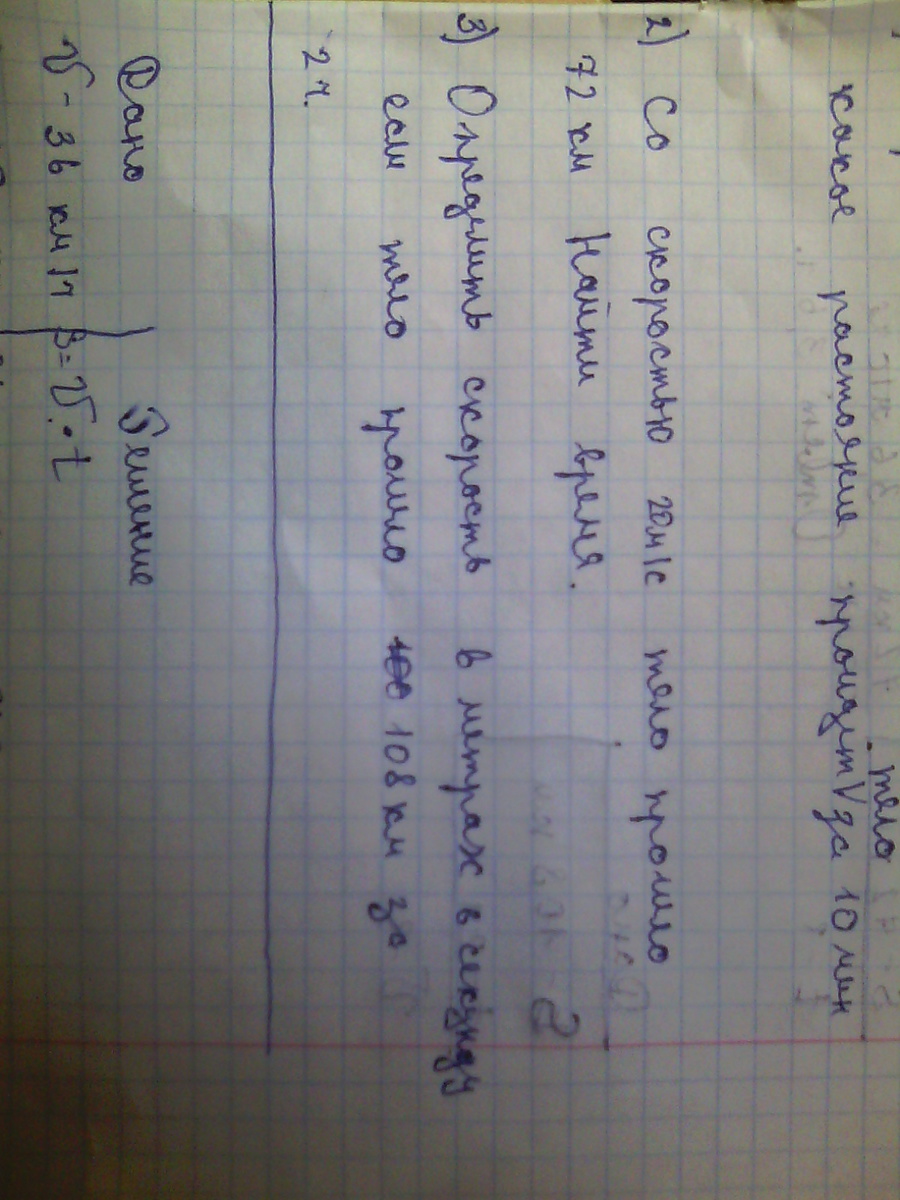 тело
какое растояние пройдет V за 10 мин
2) Со скоростью 20м/с тело прошло
72 км Найти время.
3) Определить скорость в метрах в секунду
если тело прошло 108 км за
2 ч.
Дано Решение
V - 36 км/ч S = V · t